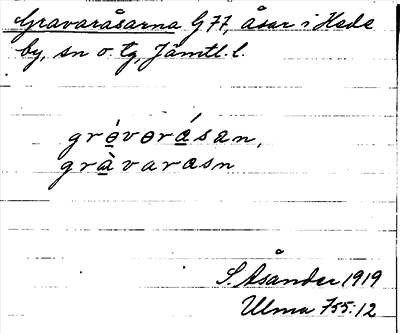 Gravaråsarna G77, åsar i Hede
by, sn o. tg, Jämtl. l.
grávarásan,
gràvarasn
S. Åsander 1919
Ulma 755:12